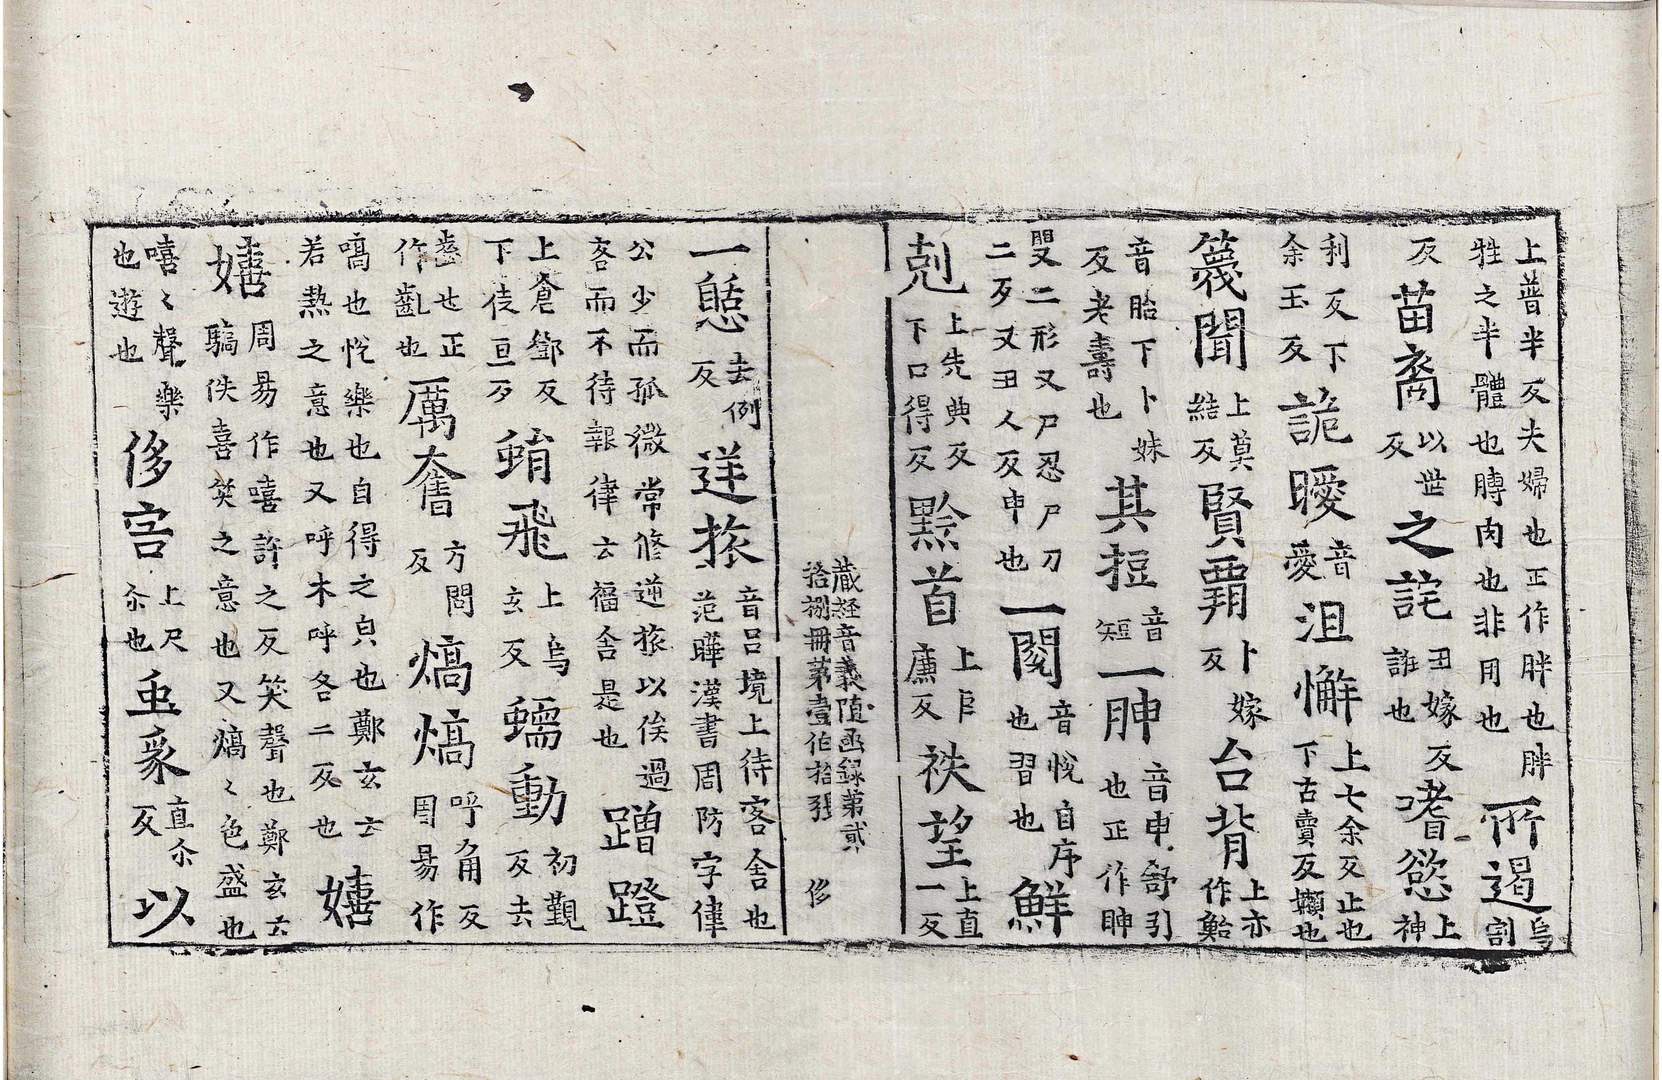 上普半反夫婦也正作胖也胖牲之半體也膊肉也非用也所遏烏割
反苗裔以世反之詫丑嫁反誰也嗜慾上神
利反下余玉反詭曖音愛沮懈上七余反止也下古賣反嬾也
篾聞上莫結反賢覇卜嫁反台背上亦作鮐
音胎下卜妹反老壽也其挳音短一胂音申舒引也正作眒
𠬧二形又尸忍尸刀二反又丑人反申也一閱音悅自序也習也鮮
剋上先典反下口得反黔首上巨廉反袟望上直一反
藏經音義随函録第貳拾捌冊第壹伯拾張 侈
一憩去例反逆旅音吕境上待客舍也范曄漢書周防字偉
公少而孤微常修逆旅以俟過客而不待報律云福舍是也蹭蹬
上倉鄧反下徒亘反蜎飛上烏玄反蠕動初覲反去
齒也正作齔也厲奮方問反熇熇呼角反周易作
嗃也恱樂也自得之皃也鄭玄云若熱之意也又呼木呼各二反也嬉
嬉周易作嘻許之反笑聲也鄭玄云驕佚喜笑之意也又熇〻色盛也
嘻〻聲樂也遊也侈害上尺尒也𧉧豸直尒反以